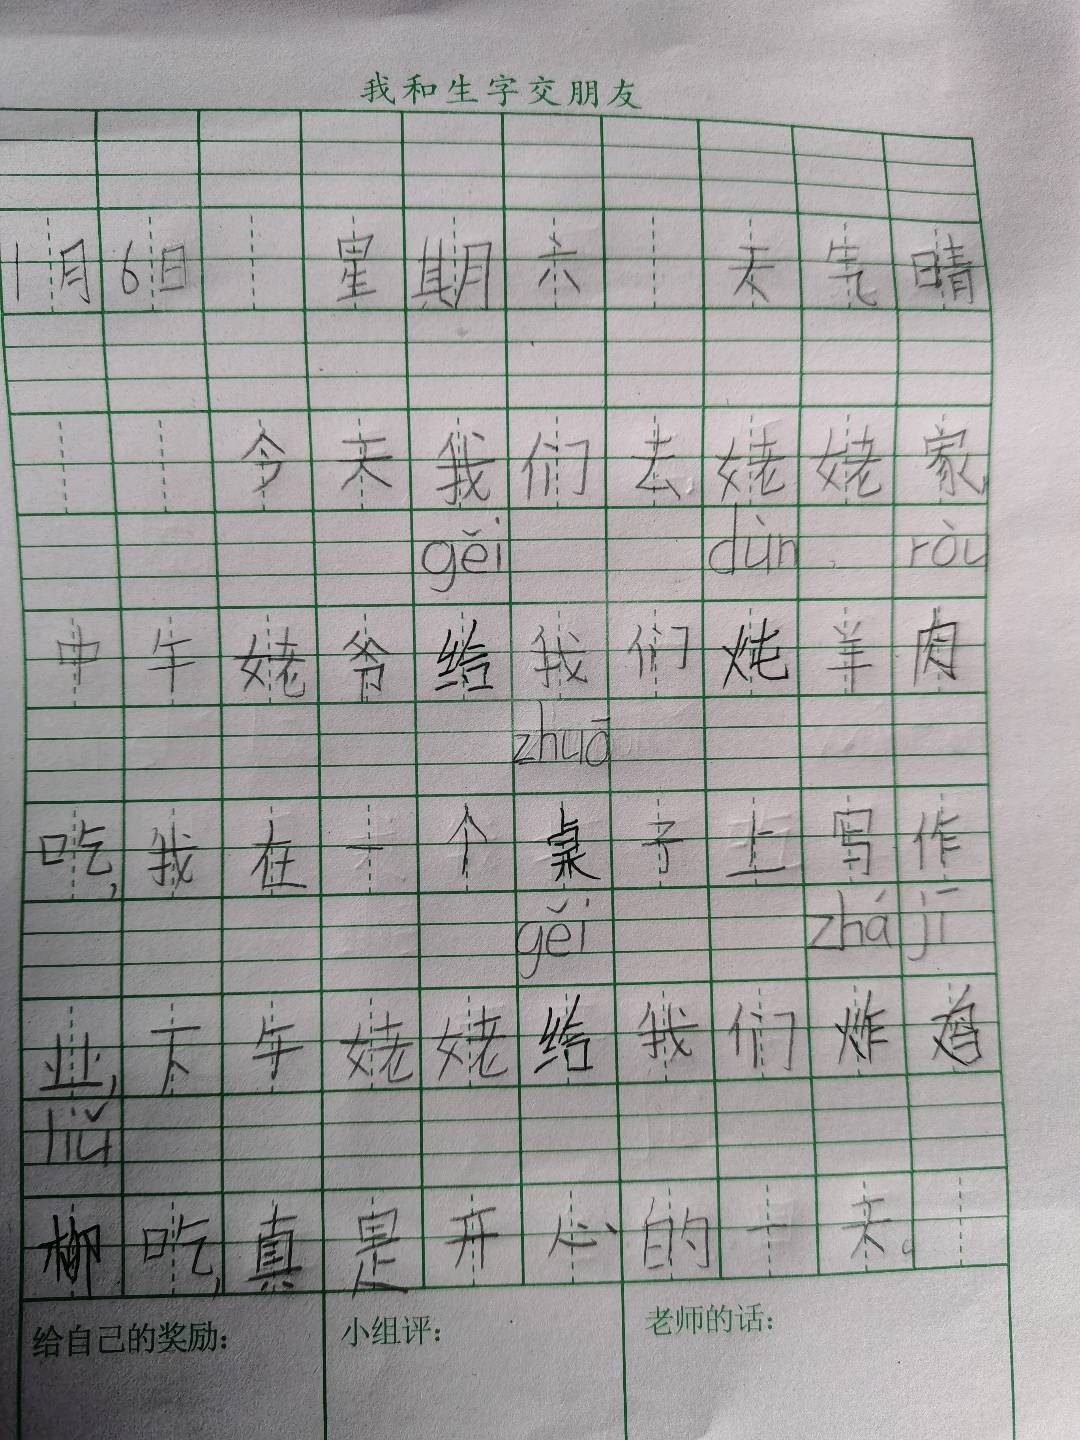 我和生字交朋友
1月6日 星期六 天气晴
今天我们去姥姥家,
gěi dùn ròu
中午姥爷给我们炖羊肉
zhuō
吃,我在一个桌子上写作
gěi zhá jī
业,下午姥姥给我们炸鸡
liǔ
柳吃,真是开心的一天。
给自己的奖励: 小组评: 老师的话: